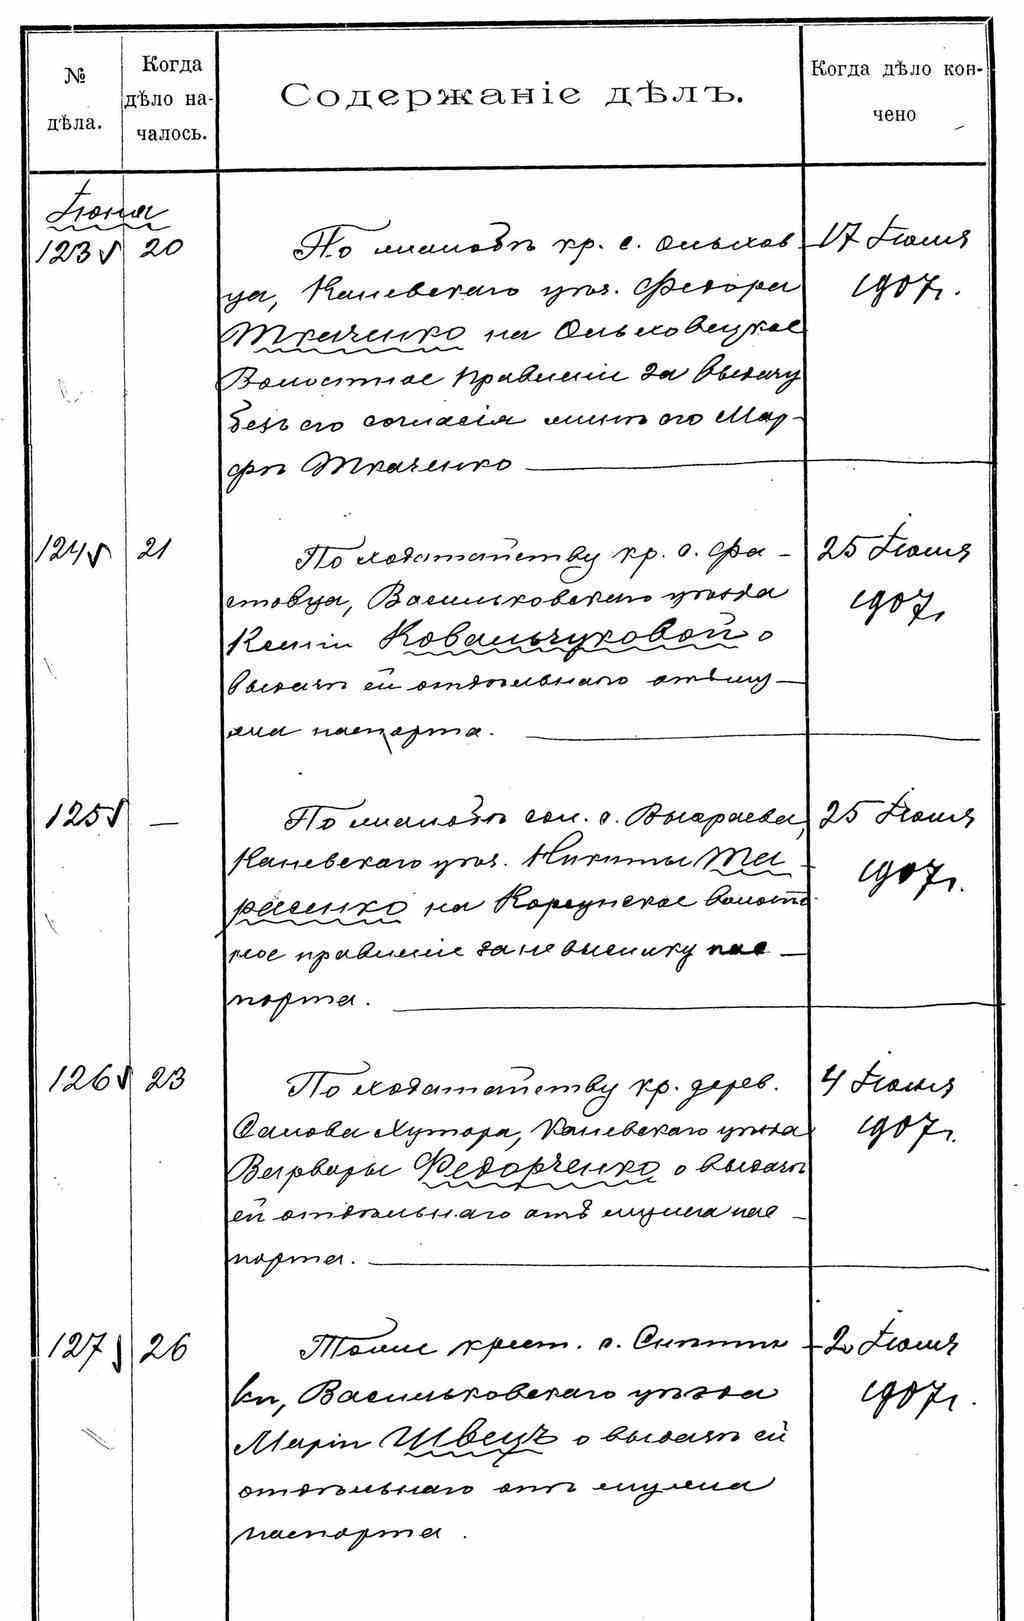 № дѣла.
Когда дѣло началось.
Содержаніе дѣлъ.
Когда дѣло кончено
Іюня
123 20 По жалобѣ кр. с. Ольхов- 17 Іюля
ца, Каневскаго уѣз. Федора 1907 г.
Ткаченко на Ольховецкое
Волостное Правленіе за выдачу
безъ его согласія женѣ его Мар-
фѣ Ткаченко
124 21 По ходатайству кр. с. Фа- 25 Іюля
стовца, Васильковскаго уѣзда 1907 г.
Ксеніи Ковальчуковой о
выдачѣ ей отдѣльнаго отъ му-
жа паспорта.
125 — По жалобѣ сол. с. Выграева, 25 Іюля
Каневскаго уѣз. Никиты Та- 1907 г.
расенко на Корсунское волост-
ное правленіе за не высылку пас-
порта.
126 23 По ходатайству кр. дерев. 4 Іюля
Сахнова Хутора, Каневскаго уѣзда 1907 г.
Варвары Федорченко о выдачѣ
ей отдѣльнаго отъ мужа пас-
порта.
127 26 Тоже крест. с. Снѣтин- 20 Іюля
ки, Васильковскаго уѣзда 1907 г.
Маріи Швецъ о выдачѣ ей
отдѣльнаго отъ мужа
паспорта.